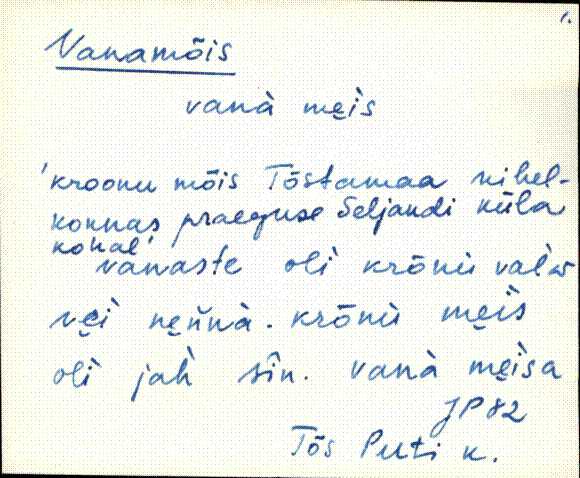 1.
Vanamõis
vanà męìs
'kroonu mõis Tõstamaa kihel-
konnas praeguse Seljandi küla
kohal'
vanaste oli krōnù
vęì nęňnà. krōnù męìs
oli jah̀ sîn. vanà męìsa
JP82
Tõs Puti k.